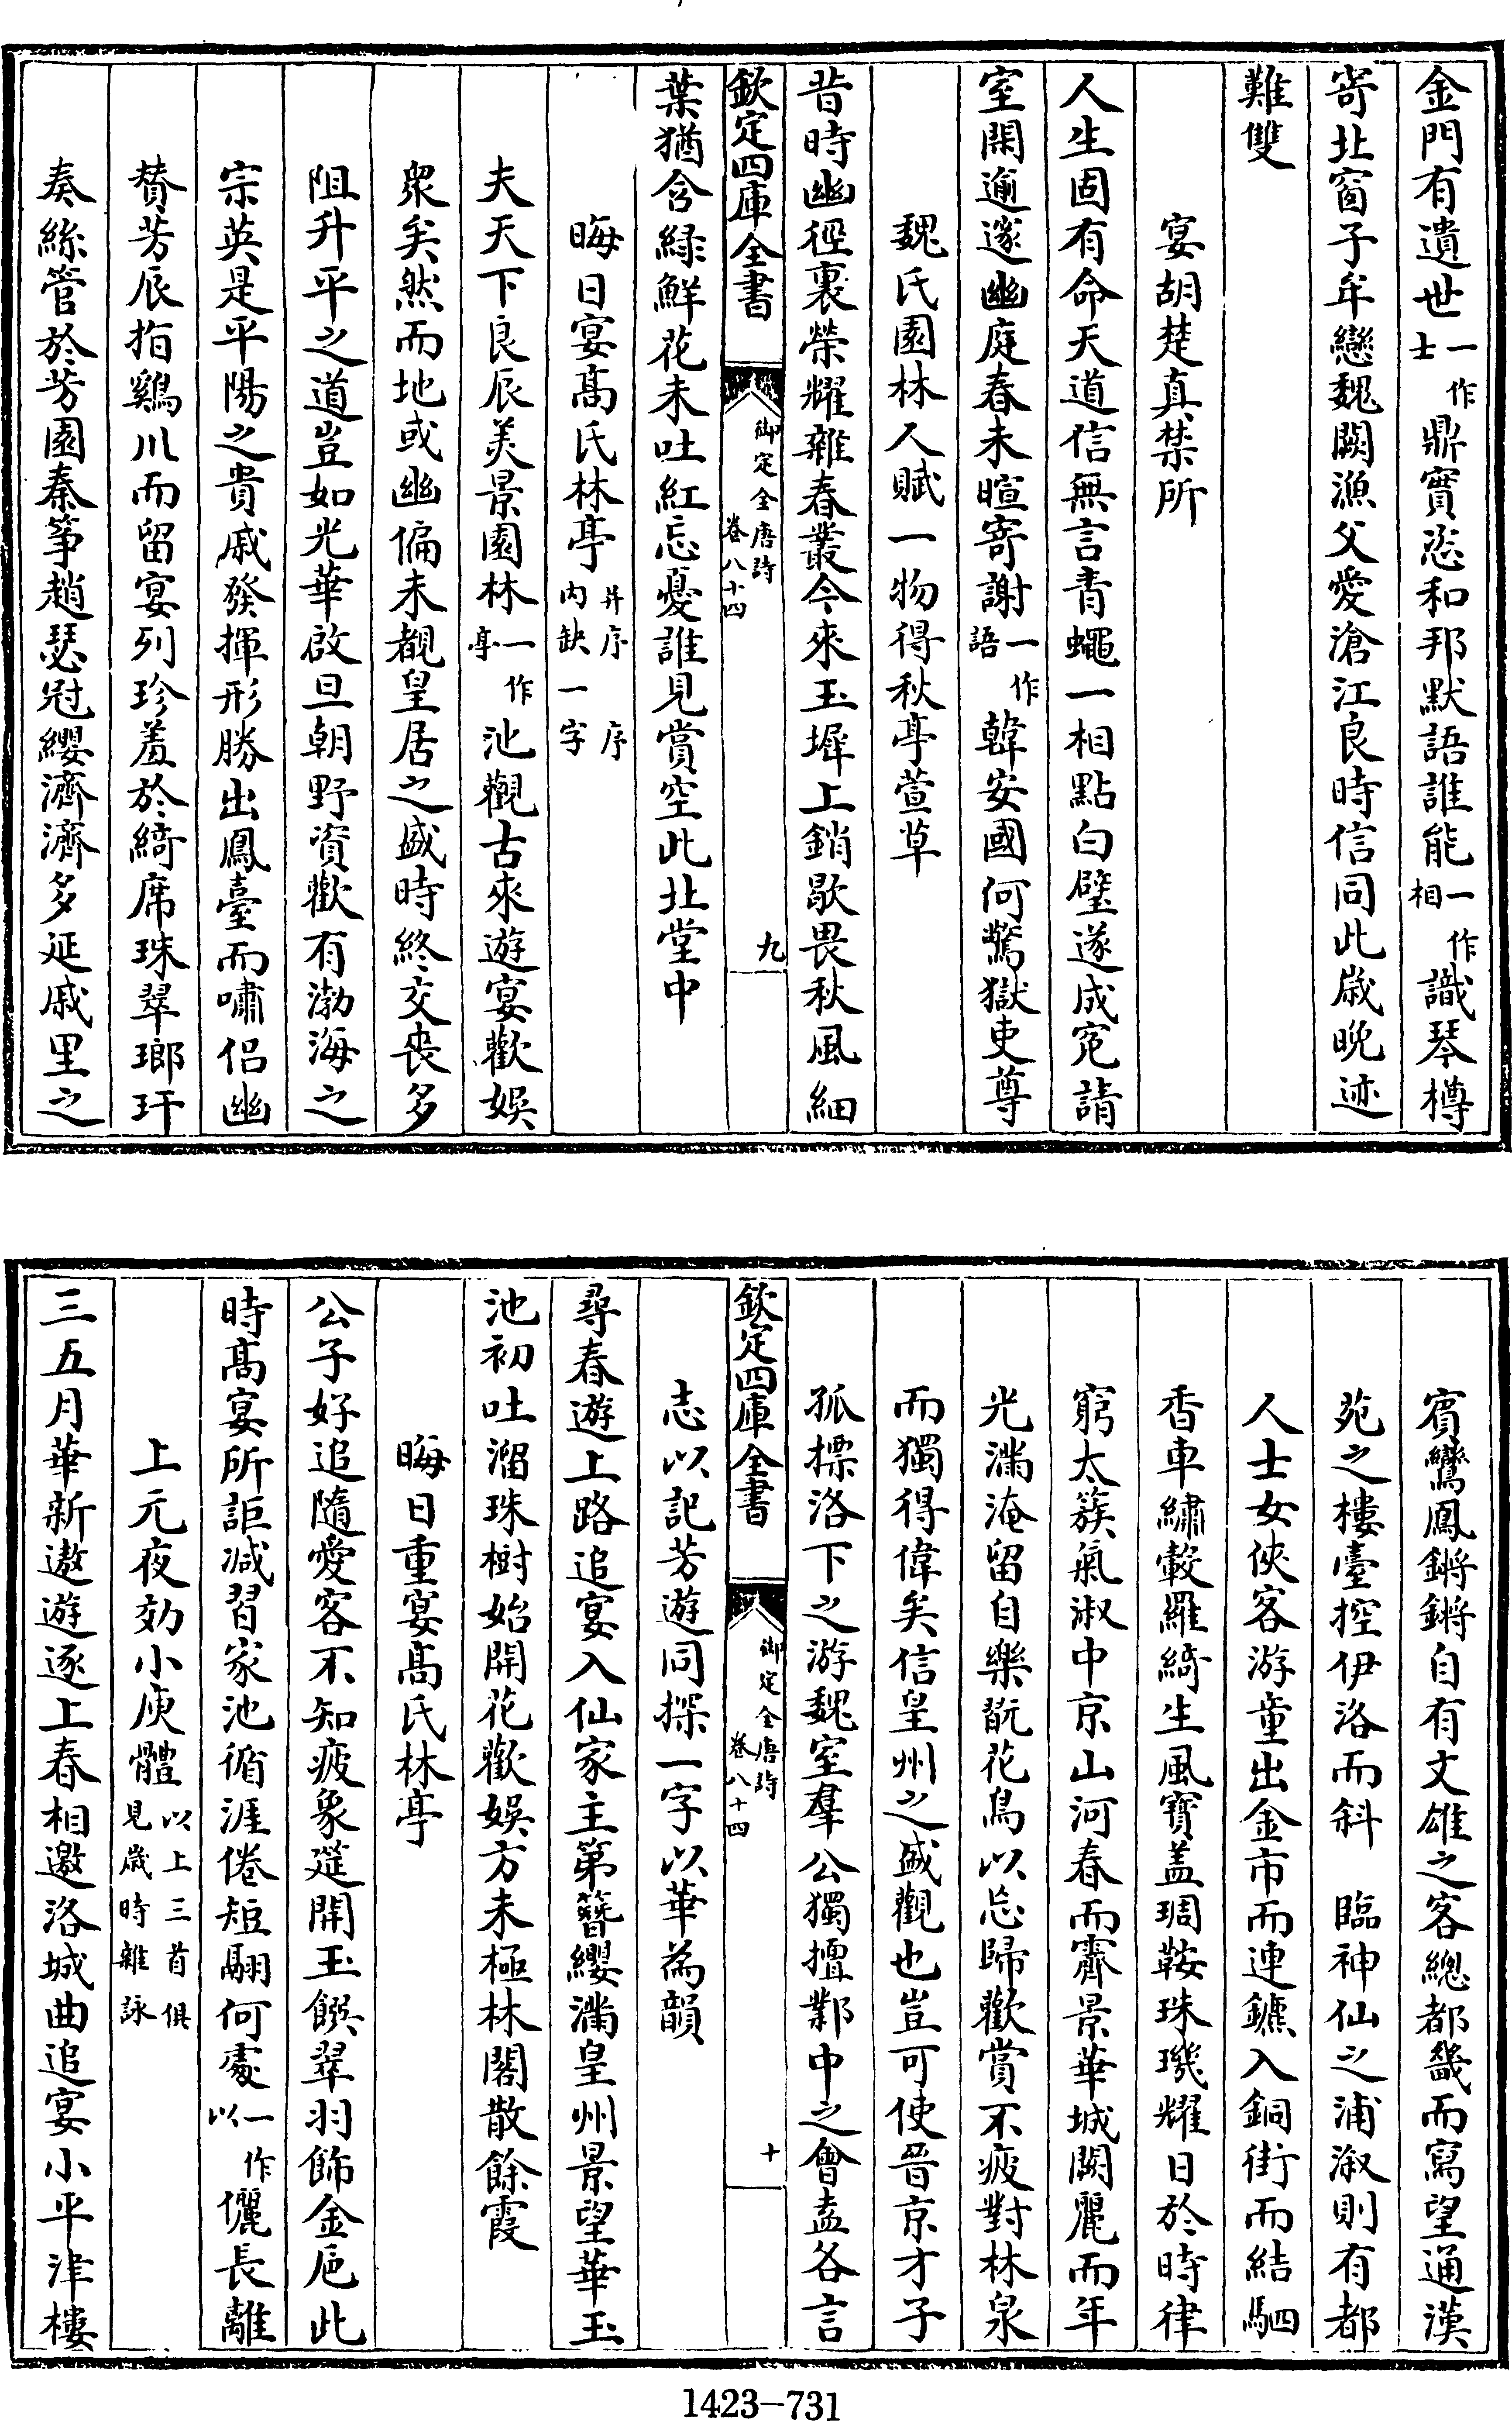 金門有遺世一作士鼎實恣和邦默語誰能一作相識琴樽
寄北窗子牟戀魏闕漁父愛滄江良時信同此歲晚迹
難雙
宴胡楚真禁所
人生固有命天道信無言青蠅一相點白璧遂成寃請
室閑逾邃幽庭春未暄寄謝一作語韓安國何驚獄吏尊
魏氏園林人賦一物得秋亭萱草
昔時幽徑裏榮耀雜春叢今來玉墀上銷歇畏秋風細
欽定四庫全書
御定全唐詩
卷八十四
九
葉猶含緑鮮花未吐紅忘憂誰見賞空此北堂中
晦日宴髙氏林亭并序 序内缺一字
夫天下良辰美景園林一作亭池觀古來遊宴歡娛
衆矣然而地或幽偏未覩皇居之盛時終交喪多
阻升平之道豈如光華啟旦朝野資歡有渤海之
宗英是平陽之貴戚發揮形勝出鳳臺而嘯侣幽
賛芳辰指鷄川而留宴列珍羞於綺席珠翠瑯玕
奏絲管於芳園秦筝趙瑟冠纓濟濟多延戚里之
賔鸞鳳鏘鏘自有文雄之客總都畿而寫望通漢
苑之樓臺控伊洛而斜　臨神仙之浦溆則有都
人士女俠客游童出金市而連鑣入銅街而結駟
香車繡轂羅綺生風寳盖琱鞍珠璣耀日於時律
窮太簇氣淑中京山河春而霽景華城闕麗而年
光滿淹留自樂翫花鳥以忘歸歡賞不疲對林泉
而獨得偉矣信皇州之盛觀也豈可使晉京才子
孤摽洛下之游魏室羣公獨擅鄴中之會盍各言
欽定四庫全書
御定全唐詩
卷八十四
十
志以記芳遊同探一字以華為韻
尋春遊上路追宴入仙家主第簪纓滿皇州景望華玉
池初吐溜珠樹始開花歡娛方未極林閣散餘霞
晦日重宴髙氏林亭
公子好追隨愛客不知疲象筵開玉饌翠羽飾金巵此
時髙宴所詎减習家池循涯倦短翮何處一作以儷長離
上元夜効小庾體以上三首俱見歲時雜詠
三五月華新遨遊逐上春相邀洛城曲追宴小平津樓
1423-731